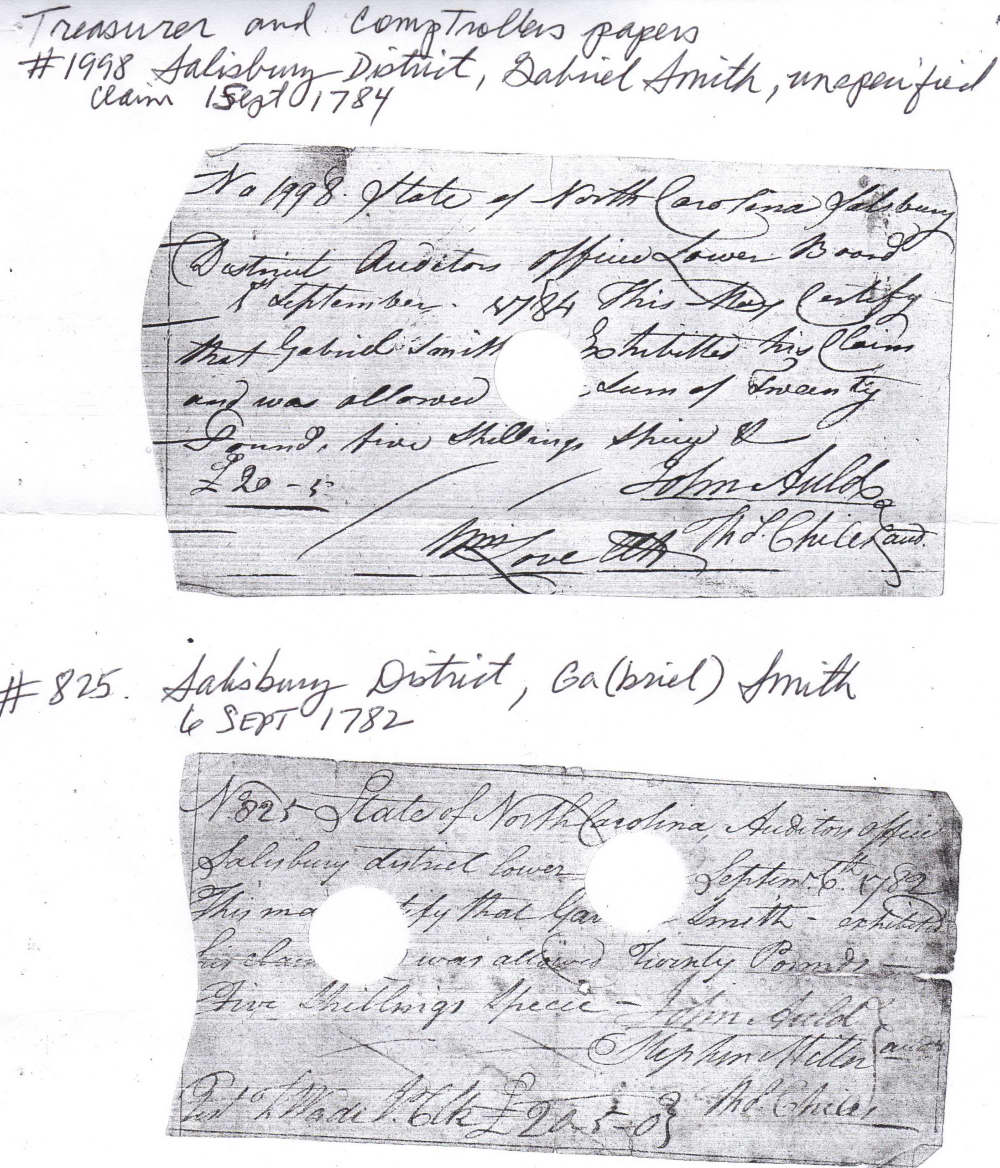 Treasurer and Comptrollers papers
#1998 Salisbury District, Gabriel Smith, unspecified
claim 1 Sept 1784
No 1998. State of North Carolina Salsbury
District Auditors office Lower Board
September 1784 This May Certify
that Gabriel Smith Exhibitted his Claim
and was allowed Sum of Twenty
Pounds five Shillings Specie &
£20-5
John Auld
Wm Love Clk Thos. Childs aud.
#825. Salisbury District, Ga(briel) Smith
6 SEPT 1782
No 825 State of North Carolina, Auditors office
Salisbury district lower Septemr. 6th 1782
This ma tify that Ga Smith - exhibited
his claim was allowed Twenty Pounds -
Five Shillings Specie - John Auld
Stephen Miller
Test Wade Clk £20-5-0 Thos. Childs